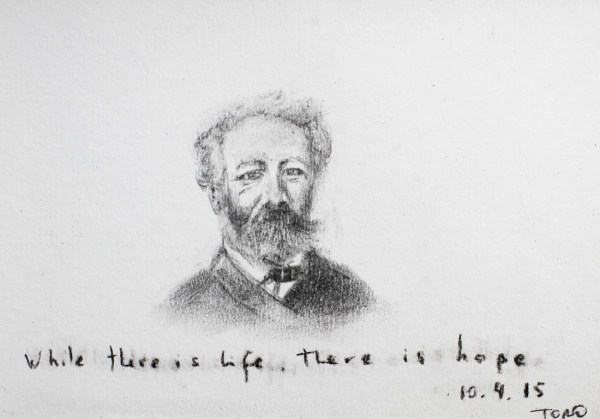 While there is life, there is hope.
10.4.15
TORO